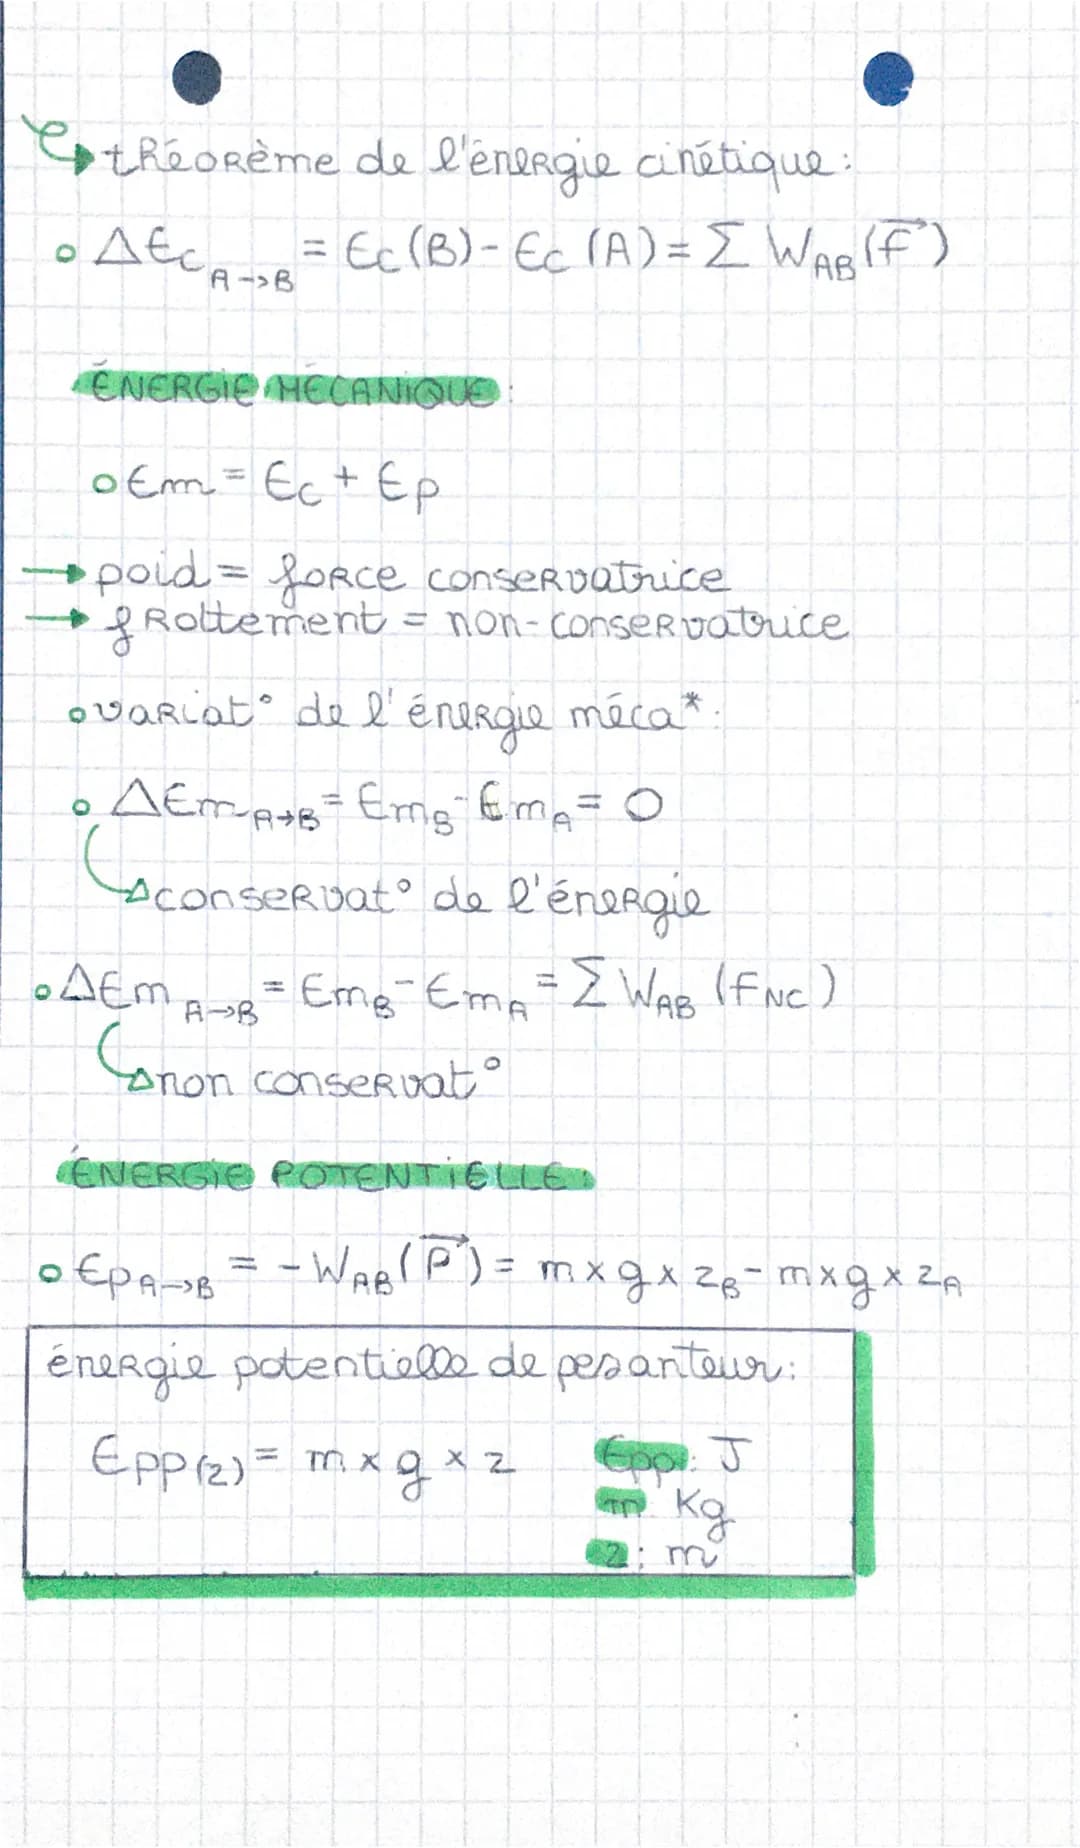 théorème de l'énergie cinétique:
ΔEc A->B = Ec(B)-Ec(A)=Σ W AB(F)
ÉNERGIE MÉCANIQUE:
Em = Ec + Ep
→ poid = force conservatrice
→ frottement = non-conservatrice
variat° de l'énergie méca*:
ΔEm A→B = Em B - Em A = 0
conservat° de l'énergie
ΔEm A→B = Em B - Em A = Σ W AB (F NC)
non conservat°
ÉNERGIE POTENTIELLE:
Ep A->B = -W AB(P) = m x g x z B - m x g x z A
énergie potentielle de pesanteur:
Epp(z) = m x g x z Epp: J
m: Kg
z: m